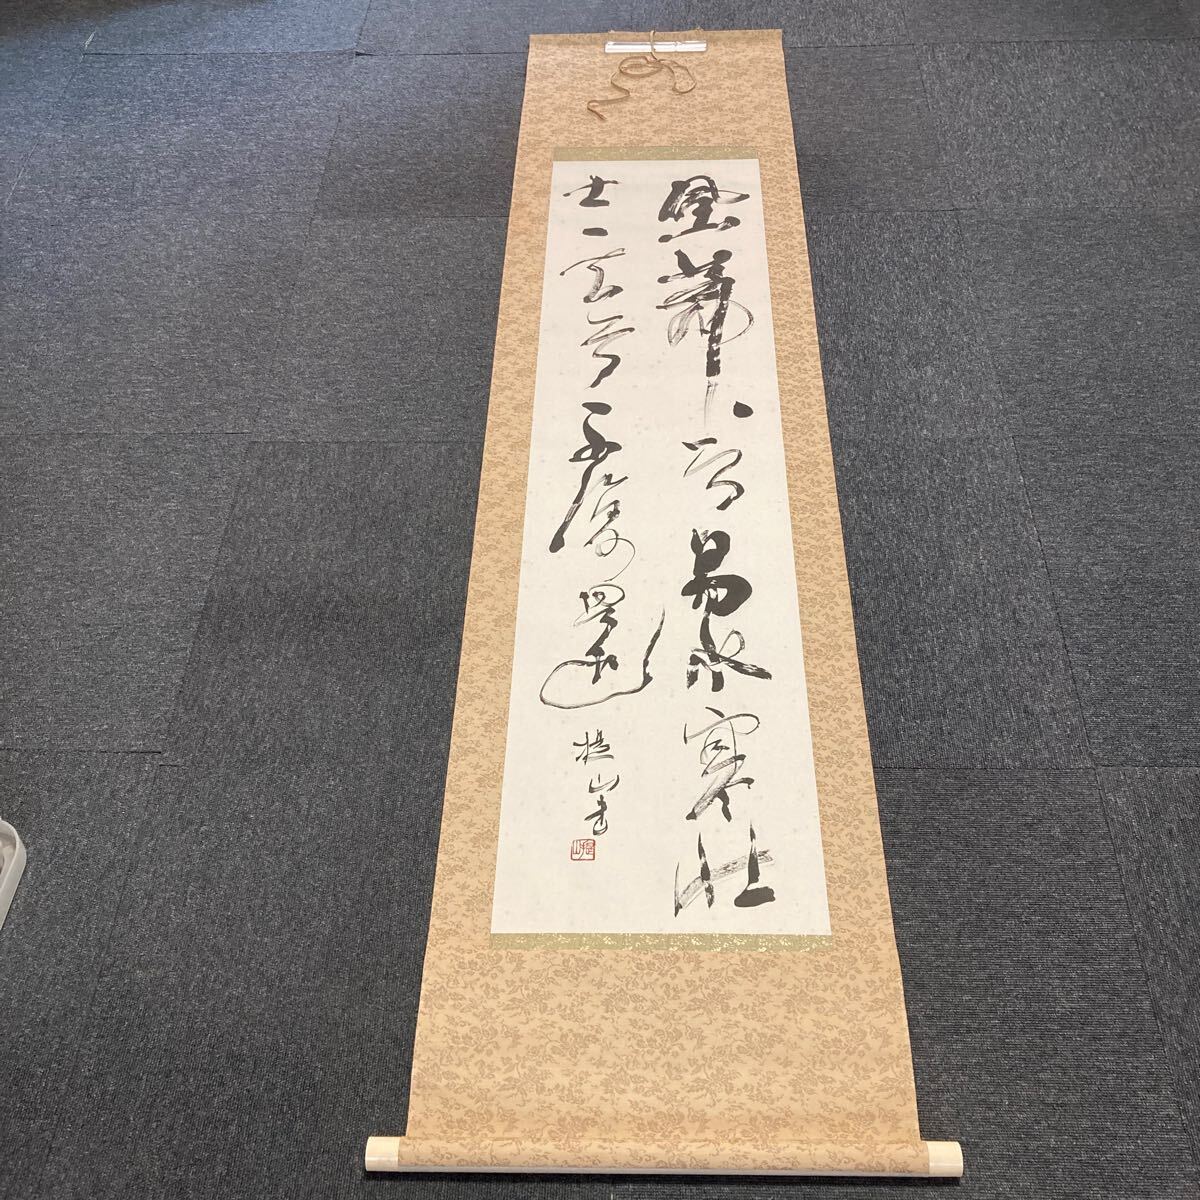 風蕭々兮易水寒壮
士一去兮不復還
山書